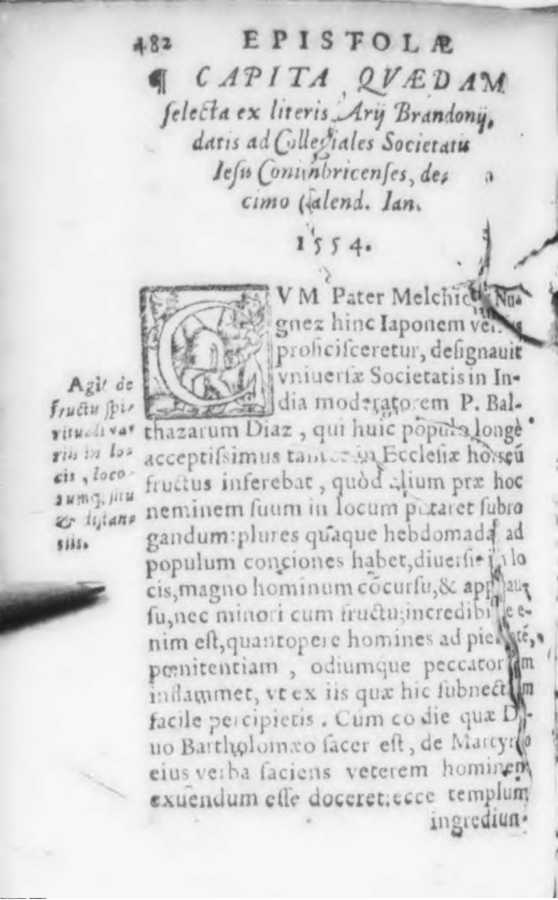 482 EPISTOLÆ
¶ CAPITA QVÆDAM
selecta ex literis Arij Brandonij,
datis ad Collegiales Societatis
Iesu Conimbricenses, de-
cimo Calend. Ian.
1554.
CVM Pater Melchior Nu-
gnez hinc Iaponem versus
proficisceretur, designauit
vniuersæ Societatis in In-
dia moderatorem P. Bal-
thazarum Diaz, qui huic populo longè
acceptissimus in Ecclesiæ
fructus inferebat, quòd alium præ hoc
neminem suum in locum putaret subro
gandum: plures quaque hebdomada ad
populum conciones habet, diuersis in lo
cis, magno hominum cōcursu, & applau-
su, nec minori cum fructu; incredibile e-
nim est, quantopere homines ad pietatē,
pœnitentiam, odiumque peccatorum
inflammet, vt ex iis quæ hic subnectam
facile percipietis. Cum eo die quæ Di-
uo Bartholomæo sacer est, de Martyrio
eius verba faciens veterem hominem
exuendum esse doceret; ecce templum
ingrediun-
Agit de
fructu spi-
rituali va
riis in lo-
cis, loco-
rumq; situ
& distan-
tiis.